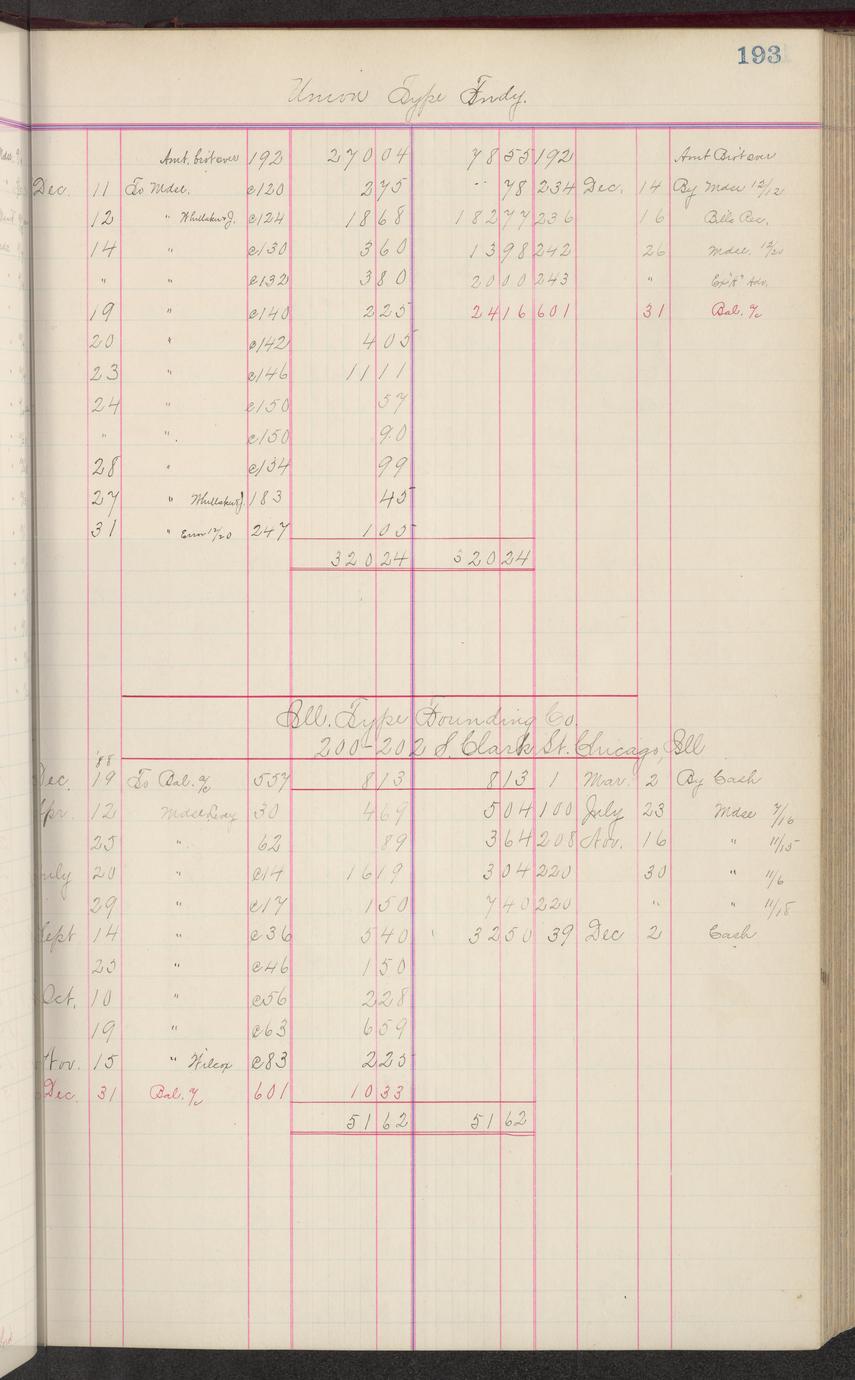 193
Union Type Fndy.
Amt. brot over 192 270 04 78 55 192 Amt Brot over
Dec. 11 To Mdse. c120 2 75 " 78 234 Dec. 14 By Mdse 12/12
12 " c124 18 68 182 77 236 16 Bills Rec.
14 " c130 3 60 13 98 242 26 Mdse. 12/20
" " c132 3 80 20 00 243 " Adv.
19 " c140 2 25 24 16 601 31 Bal. %
20 " c142 4 05
23 " c146 11 11
24 " c150 57
" " c150 90
28 " c134 99
27 " 183 45
31 " Error 12/20 247 1 05
320 24 320 24
Ill. Type Founding Co.
200-202 S. Clark St. Chicago, Ill
'88
Dec. 19 To Bal. % 557 8 13 8 13 1 Mar. 2 By Cash
Apr. 12 Mdse 30 4 69 5 04 100 July 23 Mdse 7/16
25 " 62 89 3 64 208 Nov. 16 " 11/15
July 20 " c14 16 19 3 04 220 30 " 11/6
29 " c17 1 50 7 40 220 " " 11/18
Sept 14 " c36 5 40 32 50 39 Dec 2 Cash
25 " c46 1 50
Oct. 10 " c56 2 28
19 " c63 6 59
Nov. 15 " Wilcox c83 2 25
Dec. 31 Bal. % 601 10 33
51 62 51 62